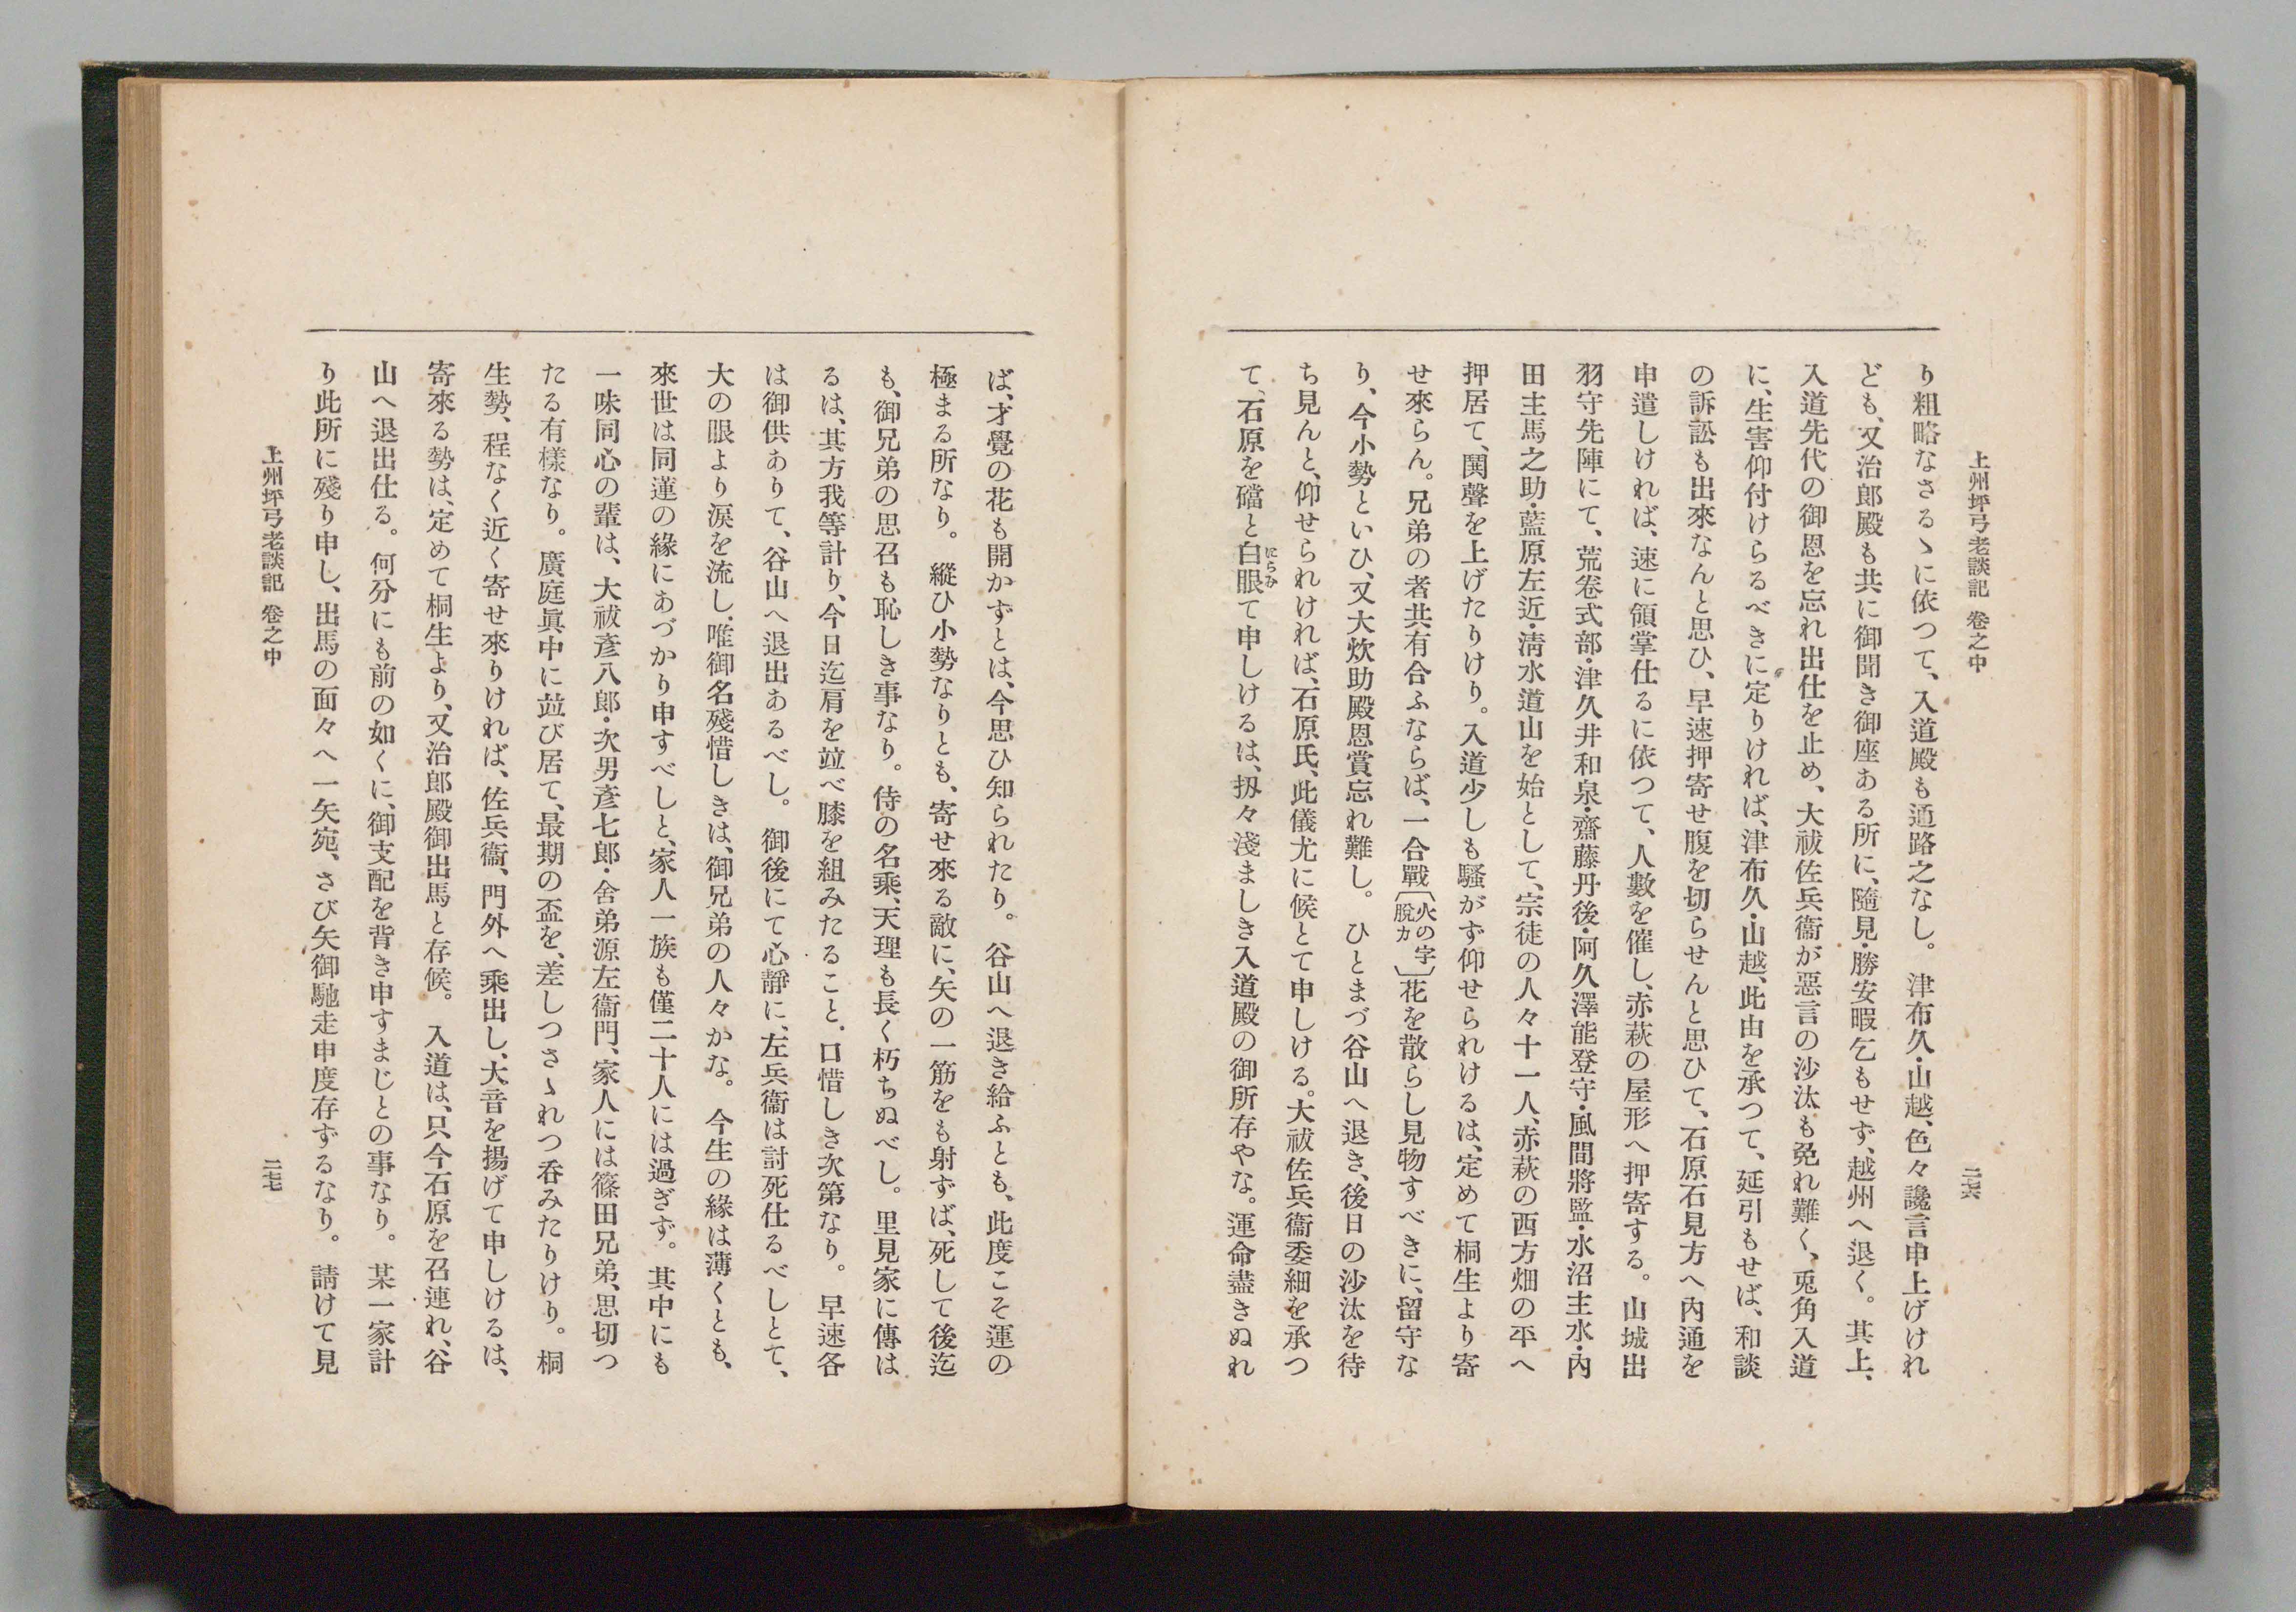 上州坪弓老談記　卷之中
二六
り粗略なさるゝに依つて、入道殿も通路之なし。　津布久・山越、色々讒言申上げけれ
ども、又治郎殿も共に御聞き御座ある所に、隨見・勝安暇乞もせず、越州へ退く。　其上、
入道先代の御恩を忘れ出仕を止め、大祓佐兵衞が惡言の沙汰も免れ難く、兎角入道
に、生害仰付けらるべきに定りければ、津布久・山越、此由を承つて、延引もせば、和談
の訴訟も出來なんと思ひ、早速押寄せ腹を切らせんと思ひて、石原石見方へ內通を
申遣しければ、速に領掌仕るに依つて、人數を催し、赤萩の屋形へ押寄する。　山城出
羽守先陣にて、荒卷式部・津久井和泉・齋藤丹後・阿久澤能登守・風間將監・水沼主水・內
田主馬之助・藍原左近・淸水道山を始として、宗徒の人々十一人、赤萩の西方畑の平へ
押居て、鬨聲を上げたりけり。入道少しも騷がず仰せられけるは、定めて桐生より寄
せ來らん。兄弟の者共有合ふならば、一合戰〔火の字脫カ〕花を散らし見物すべきに、留守な
り、今小勢といひ、又大炊助殿恩賞忘れ難し。　ひとまづ谷山へ退き、後日の沙汰を待
ち見んと、仰せられければ、石原氏、此儀尤に候とて申しける。大祓佐兵衞委細を承つ
て、石原を礑と白眼にらみて申しけるは、扨々淺ましき入道殿の御所存やな。運命盡きぬれ
ば、才覺の花も開かずとは、今思ひ知られたり。　谷山へ退き給ふとも、此度こそ運の
極まる所なり。　縱ひ小勢なりとも、寄せ來る敵に、矢の一筋をも射ずば、死して後迄
も、御兄弟の思召も恥しき事なり。　侍の名乘、天理も長く朽ちぬべし。　里見家に傳は
るは、其方我等計り、今日迄肩を竝べ膝を組みたること、口惜しき次第なり。　早速各
は御供ありて、谷山へ退出あるべし。　御後にて心靜に、左兵衞は討死仕るべしとて、
大の眼より淚を流し、唯御名殘惜しきは、御兄弟の人々かな。　今生の緣は薄くとも、
來世は同蓮の緣にあづかり申すべしと、家人一族も僅二十人には過ぎず。　其中にも
一味同心の輩は、大祓彥八郎・次男彥七郎・舍弟源左衞門、家人には篠田兄弟、思切つ
たる有樣なり。　廣庭眞中に竝び居て、最期の盃を、差しつさゝれつ呑みたりけり。　桐
生勢、程なく近く寄せ來りければ、佐兵衞、門外へ乘出し、大音を揚げて申しけるは、
寄來る勢は、定めて桐生より、又治郎殿御出馬と存候。　入道は、只今石原を召連れ、谷
山へ退出仕る。　何分にも前の如くに、御支配を背き申すまじとの事なり。　某一家計
り此所に殘り申し、出馬の面々へ一矢宛、さび矢御馳走申度存ずるなり。　請けて見
上州坪弓老談記　卷之中
二七